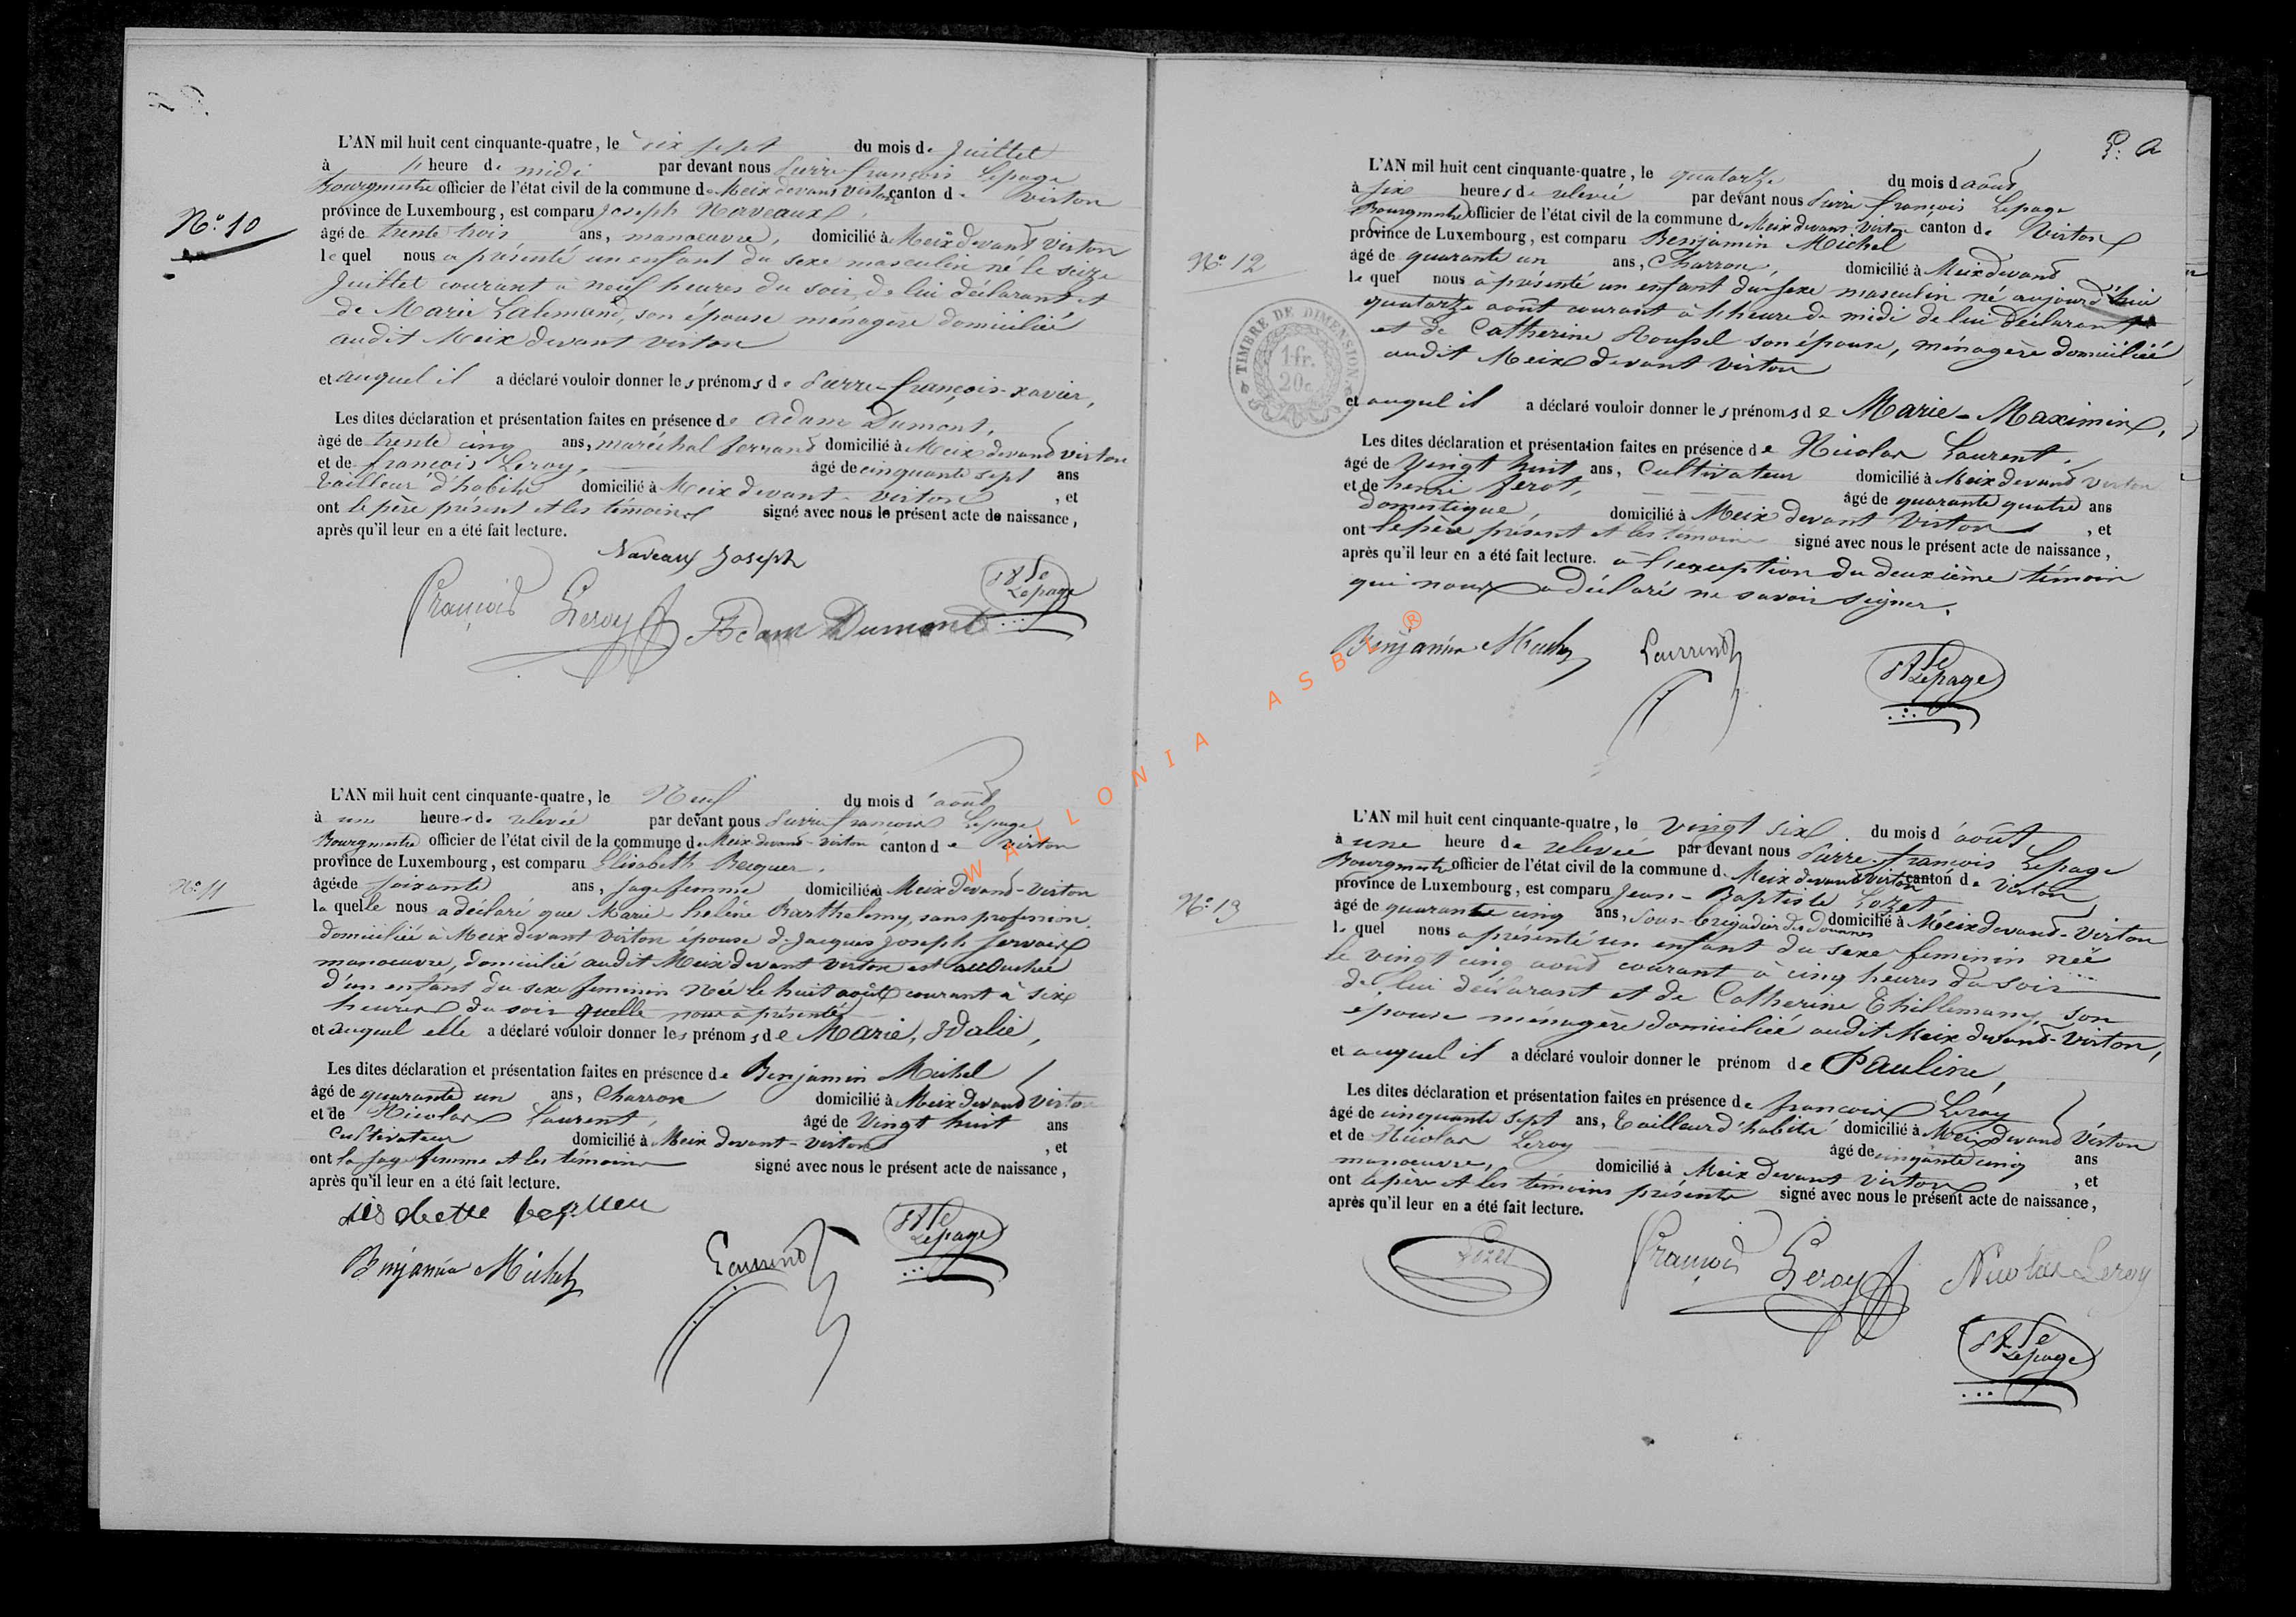 L'AN mil huit cent cinquante-quatre, le dix sept du mois de Juillet
à heure de midi par devant nous Pierre françois Lepage
Bourgmestre officier de l'état civil de la commune de Meix devant Virton canton de Virton
N° 10
province de Luxembourg, est comparu Joseph Nerveaux
âgé de trente trois ans, manoeuvre, domicilié à Meix devant Virton
lequel nous a présenté un enfant du sexe masculin né le seize
Juillet courant à neuf heures du soir, de lui déclarant et
de Marie Lalemand, son épouse ménagère domiciliée
audit Meix devant virton
et auquel il a déclaré vouloir donner les prénoms de Pierre-françois-xavier,
Les dites déclaration et présentation faites en présence de adam Dumont,
âgé de trente cinq ans, maréchal ferrand domicilié à Meix devant virton
et de françois Leroy, âgé de cinquante sept ans
tailleur d'habits domicilié à Meix devant-virton, et
ont le père présent et les témoins signé avec nous le présent acte de naissance,
après qu'il leur en a été fait lecture.
Naveaux Joseph
François Leroy Adam Dumont Lepage
L'AN mil huit cent cinquante-quatre, le Neuf du mois d'août
à une heure de relevée par devant nous Pierre françois Lepage
Bourgmestre officier de l'état civil de la commune de Meix devant-virton canton de virton
province de Luxembourg, est comparu Elisabeth Becquer.
N° 11
âgée de soixante ans, sage femme domiciliée à Meix devant-virton
laquelle nous a déclaré que Marie helène Barthelemy, sans profession
domiciliée à Meix devant virton épouse de Jacques Joseph Servais
manoeuvre, domicilié audit Meix devant virton est accouchée
d'un enfant du sexe feminin née le huit août courant à six
heures du soir quelle nous a présenté
et auquel elle a déclaré vouloir donner les prénoms de Marie, Idalie,
Les dites déclaration et présentation faites en présence de Benjamin Michel
âgé de quarante un ans, Charron domicilié à Meix devant virton
et de Nicolas Laurent, âgé de vingt huit ans
cultivateur domicilié à Meix devant-virton, et
ont la sage femme et les témoins signé avec nous le présent acte de naissance,
après qu'il leur en a été fait lecture.
Benjamin Michel Laurent Lepage
L'AN mil huit cent cinquante-quatre, le quatorze du mois d août
à six heures de relevée par devant nous Pierre françois Lepage
Bourgmestre officier de l'état civil de la commune de Meix devant Virton canton de Virton
province de Luxembourg, est comparu Benjamin Michel
N° 12
âgé de quarante un ans, Charron, domicilié à Meix devant
lequel nous à présenté un enfant du sexe masculin né aujourd'hui
quatorze août courant à heure de midi de lui déclarant
et de Catherine Roussel son épouse, ménagère domiciliée
audit Meix devant virton
TIMBRE DE DIMENSION
1 fr.
20 c.
et auquel il a déclaré vouloir donner les prénoms de Marie-Maximin,
Les dites déclaration et présentation faites en présence de Nicolas Laurent,
âgé de vingt huit ans, Cultivateur domicilié à Meix devant virton
et de henri ferot, âgé de quarante quatre ans
domestique, domicilié à Meix devant Virton, et
ont le père présent et les témoins signé avec nous le présent acte de naissance,
après qu'il leur en a été fait lecture. à l'exception du deuxième témoin
qui nous a déclaré ne savoir signer.
Benjamin Michel Laurent Lepage
L'AN mil huit cent cinquante-quatre, le vingt six du mois d'août
à une heure de relevée par devant nous Pierre-françois Lepage
Bourgmestre officier de l'état civil de la commune de Meix devant virton canton de virton
N° 13
province de Luxembourg, est comparu Jean-Baptiste Lozet
âgé de quarante cinq ans, Sous-brigadier des douannes domicilié à Meix devant-virton
lequel nous a présenté un enfant du sexe feminin née
le vingt cinq août courant à cinq heures du soir
de lui déclarant et de Catherine Thillemany son
épouse ménagère domiciliée audit Meix devant-virton,
et auquel il a déclaré vouloir donner le prénom de Pauline,
Les dites déclaration et présentation faites en présence de françois Leroy
âgé de cinquante sept ans, tailleur d'habits domicilié à Meix devant virton
et de Nicolas Leroy âgé de cinquante cinq ans
manoeuvre, domicilié à Meix devant virton, et
ont le père et les témoins présents signé avec nous le présent acte de naissance,
après qu'il leur en a été fait lecture.
Lozet François Leroy Nicolas Leroy
Lepage
WALLONIA ASBL ®